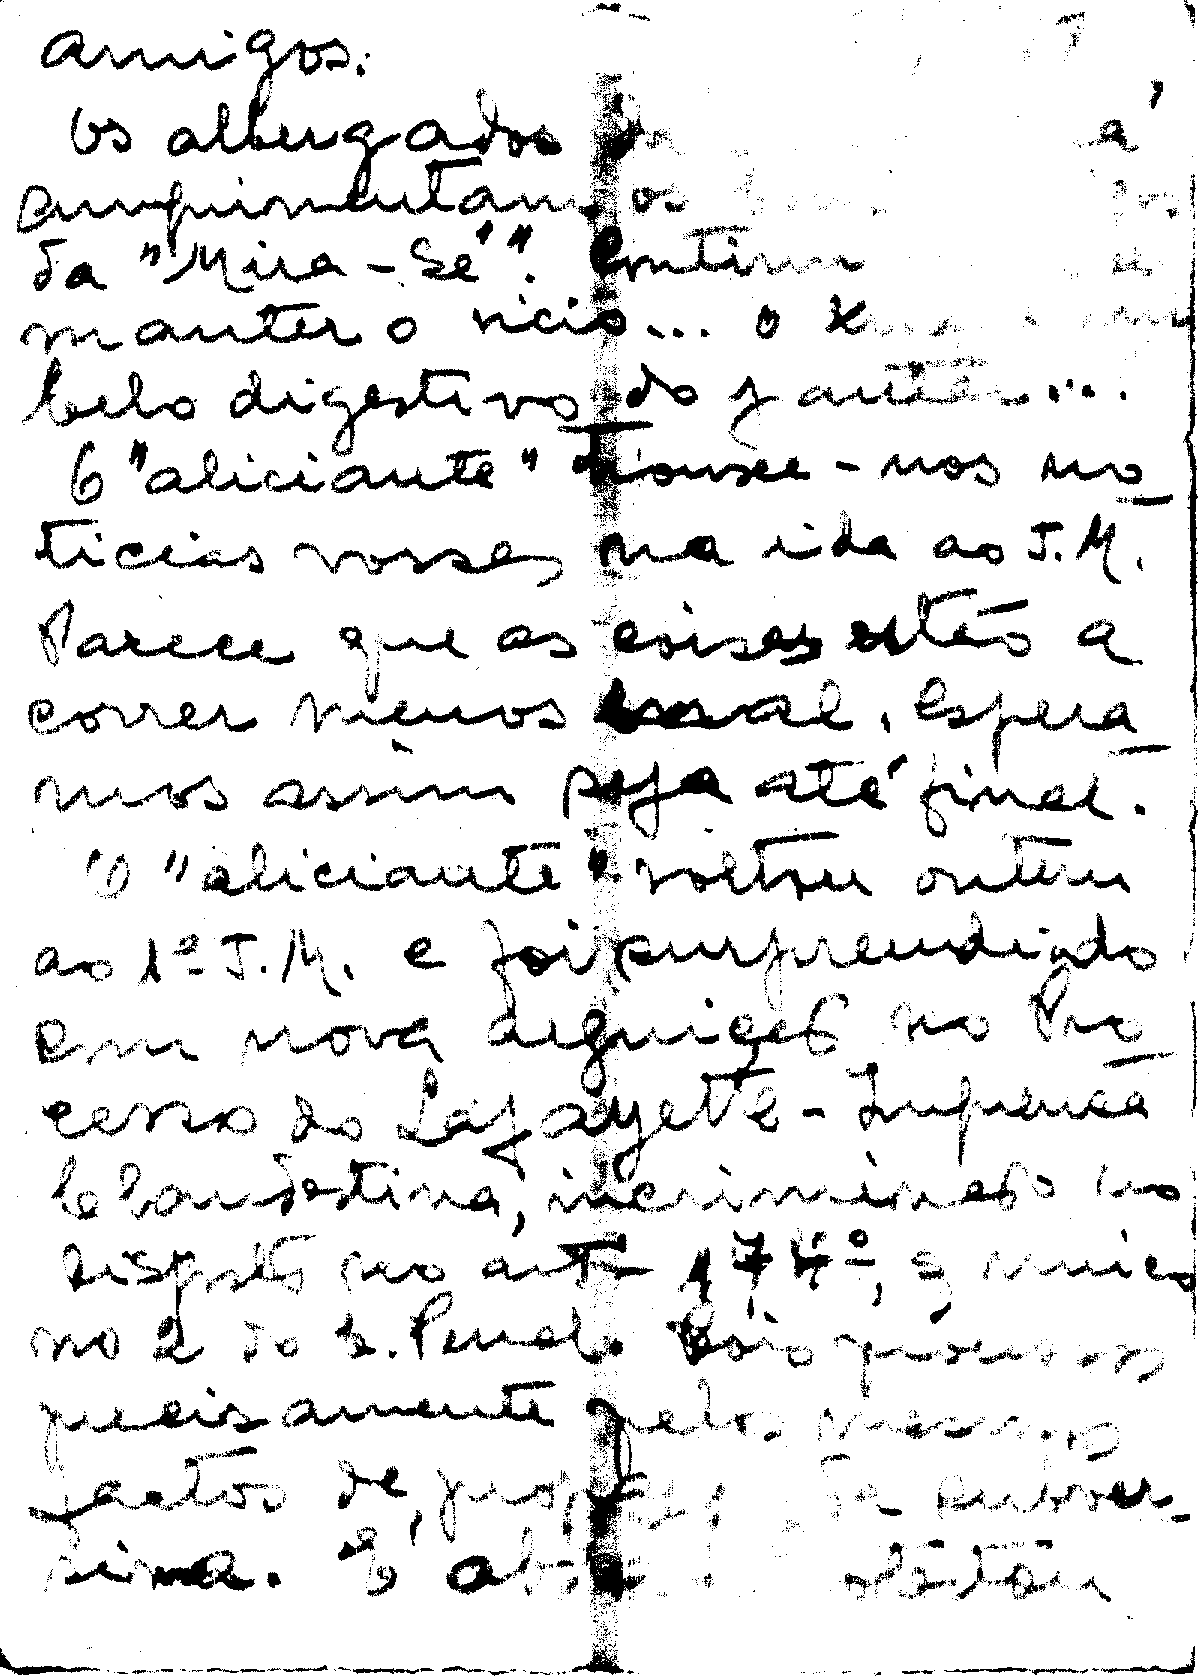 amigos.
Os albergados da
cumprimentam os
da "Mira-Sé".
manter o vicio... o
belo digestivo do jantar...
O "aliciante" trouxe-nos no_
ticias vossas na ida ao J.M.
Parece que as coisas estão a
correr menos mal. Espera_
mos assim seja até final.
O "aliciante" voltou ontem
ao 1º J.M. e foi surpreendido
em nova arguição no Pro_
cesso do Lafayette - Imprensa
Clandestina, incriminado no
disposto no art. 174º, § unico
nº 2 do C. Penal. Dois processos
precisamente pelos mesmos
factos de, subver-
siva. E'